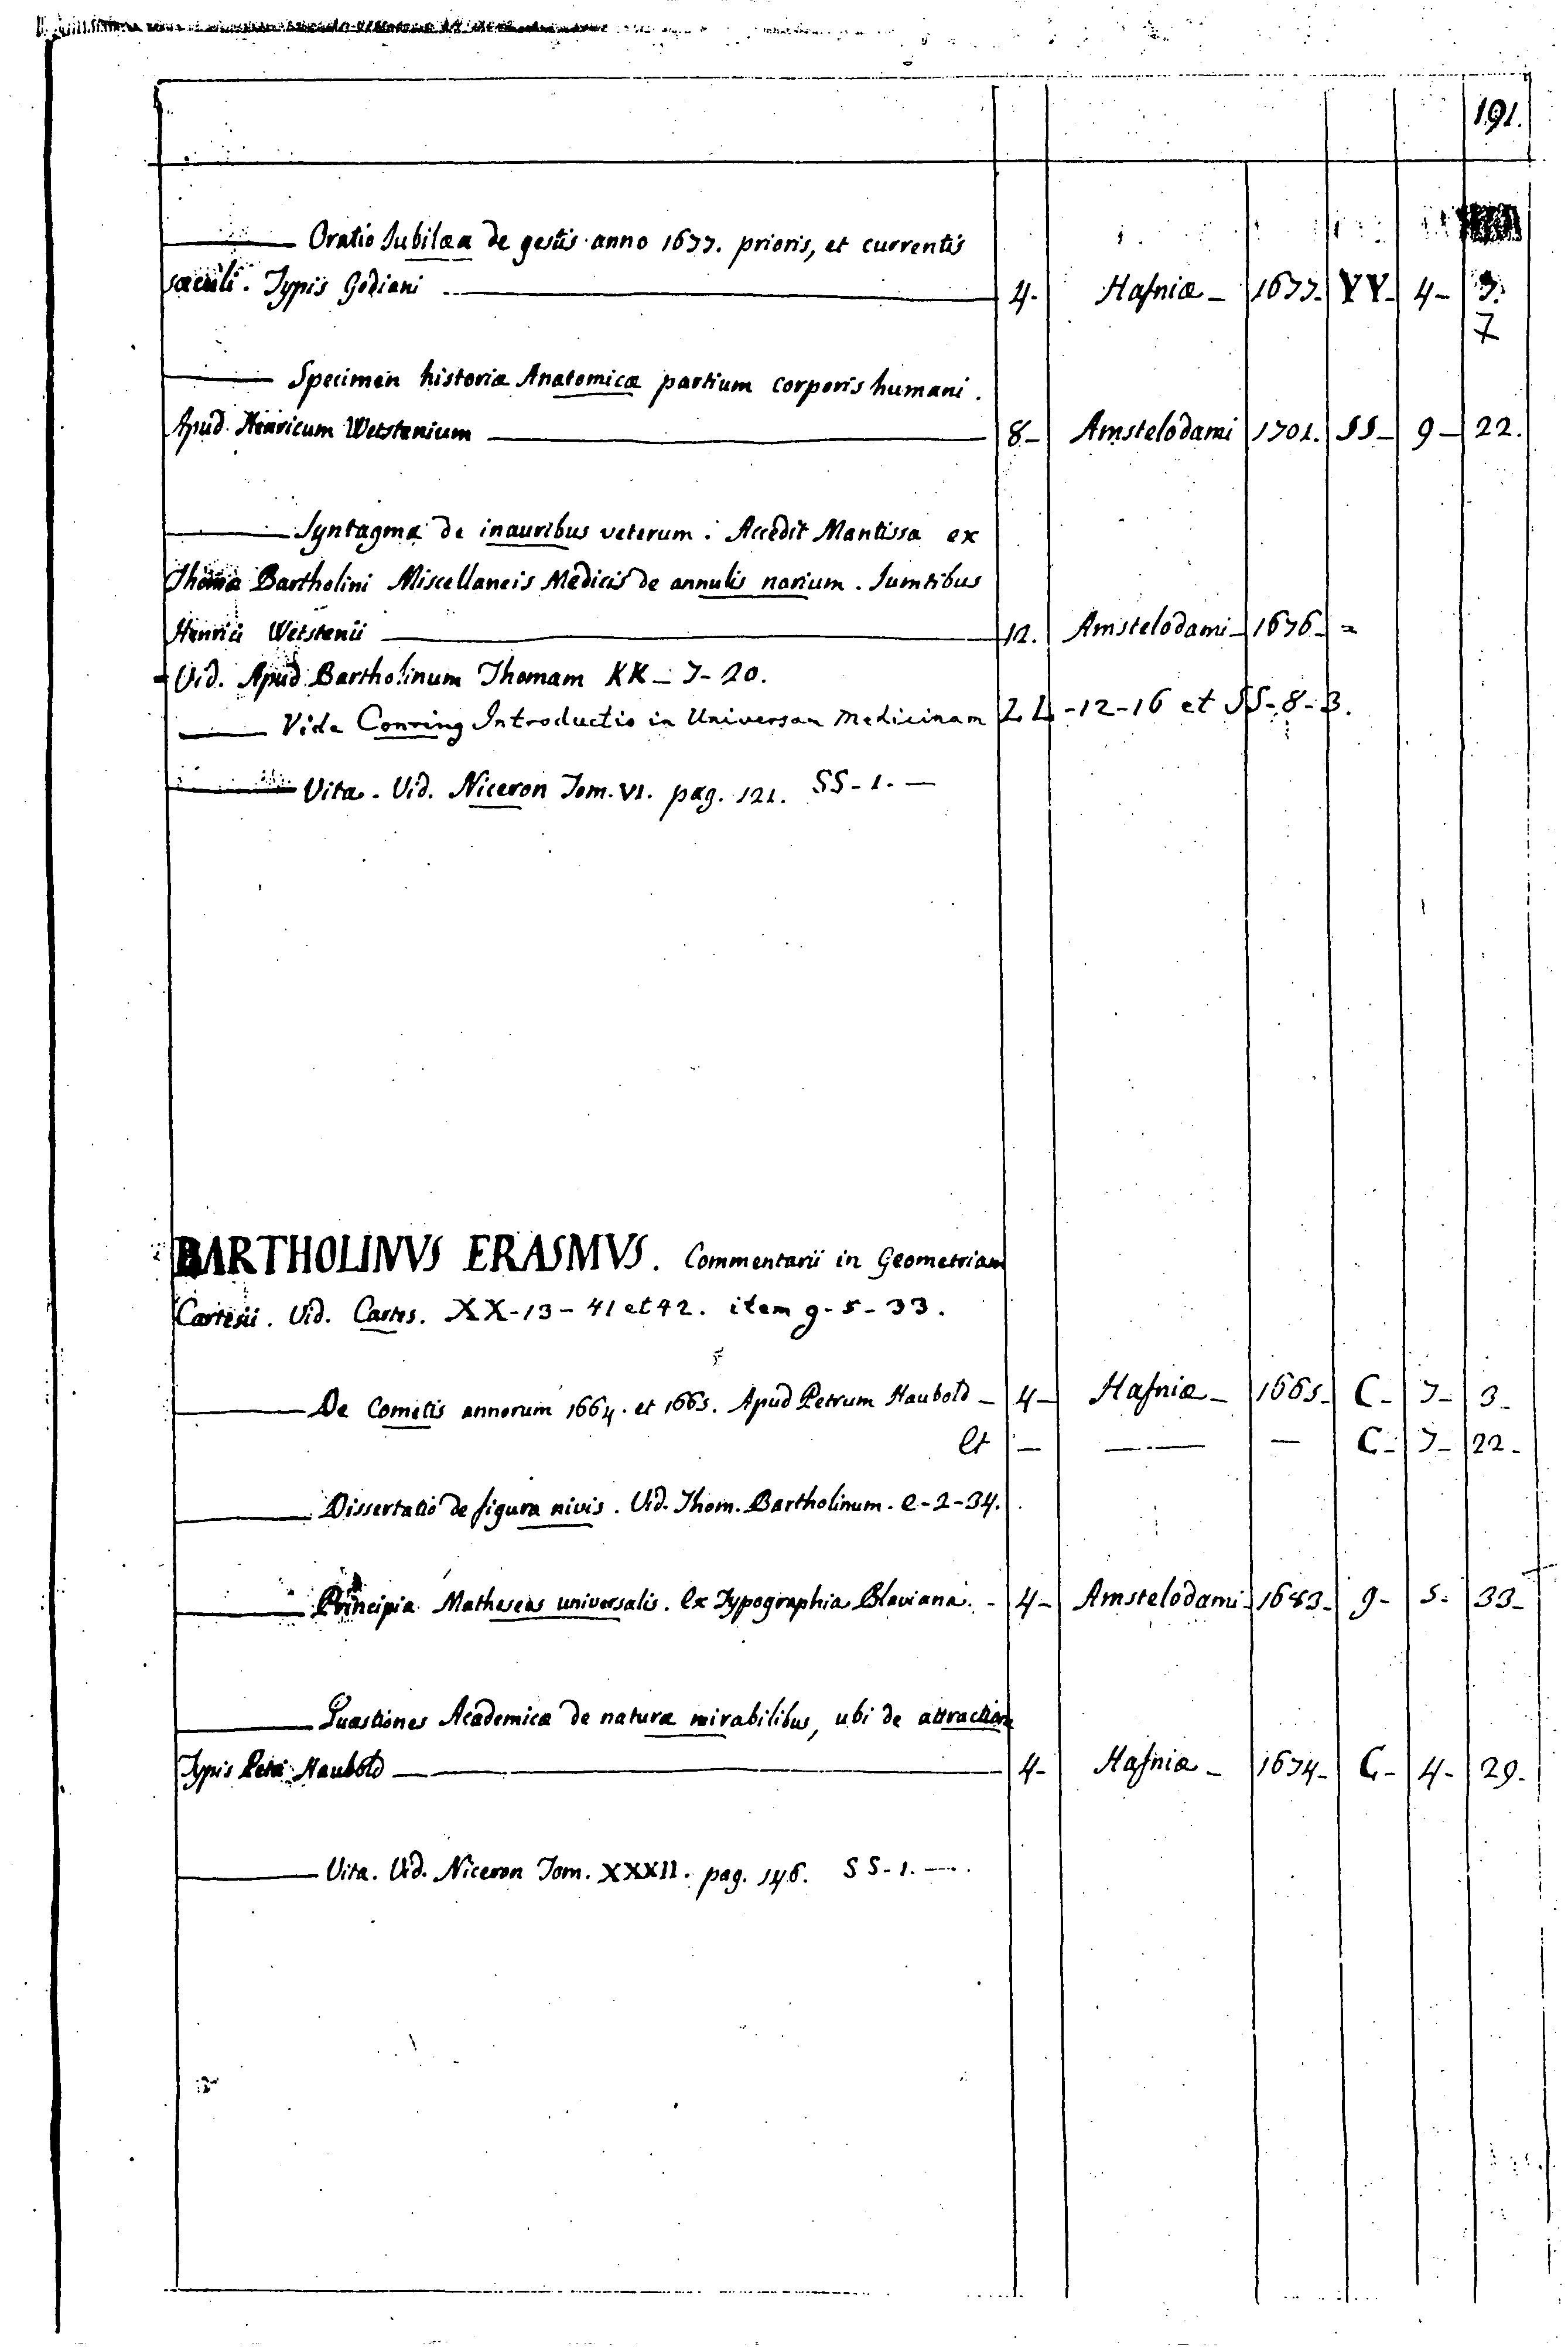 191.
——— Oratio Jubilæa de gestis anno 1677. prioris, et currentis
sæculi. Typis Godiani ——— 4. Hafniæ – 1677– YY– 4– 7.
7
——— Specimen historiæ Anatomicæ partium corporis humani.
Apud Henricum Wetstenium ——— 8– Amstelodami 1701. SS– 9– 22.
——— Syntagma de inauribus veterum. Accedit Mantissa ex
Thomæ Bartholini Miscellaneis Medicis de annulis narium. Sumtibus
Henrici Wetstenii ——— 12. Amstelodami – 1676– =
= Vid. Apud Bartholinum Thomam KK – 7– 20.
——— Vide Conring Introductio in Universam Medicinam LL –12–16 et SS–8–3.
——— Vita. Vid. Niceron Tom. VI. pag. 121. SS–1.—
BARTHOLINVS ERASMVS. Commentarii in Geometriam
Cartesii. Vid. Cartes. XX–13–41 et 42. item g–5–33.
——— De Cometis annorum 1664. et 1665. Apud Petrum Haubold – 4– Hafniæ – 1665– C– 7– 3–
Et — ——— — C– 7– 22–
——— Dissertatio de figura nivis. Vid. Thom. Bartholinum. e–2–34.
——— Principia Matheseos universalis. Ex Typographia Blaviana. – 4– Amstelodami– 1683– g– 5. 33–
——— Quæstiones Academicæ de naturæ mirabilibus, ubi de attractione
Typis Petri Haubold ——— 4– Hafniæ – 1674– C– 4– 29–
——— Vita. Vid. Niceron Tom. XXXII. pag. 146. SS–1.—.